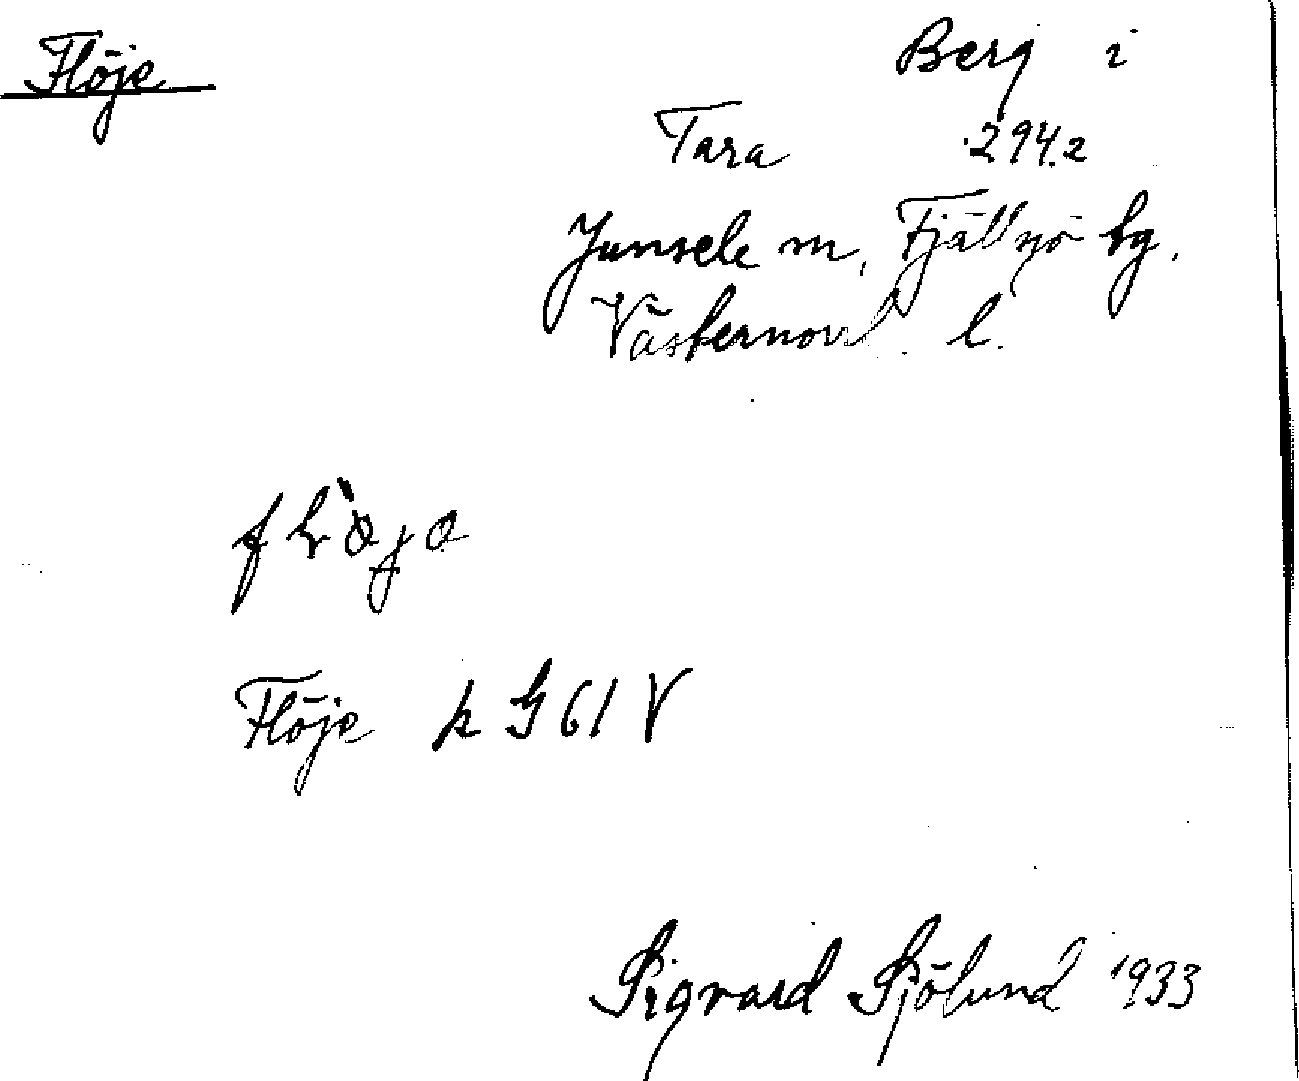 Flöje
Berg i
Tara 294.2
Junsele sn, Fjällsjö tg.
Västernorrl. l.
Flöje k G 61 V
Sigvard Sjölund 1933